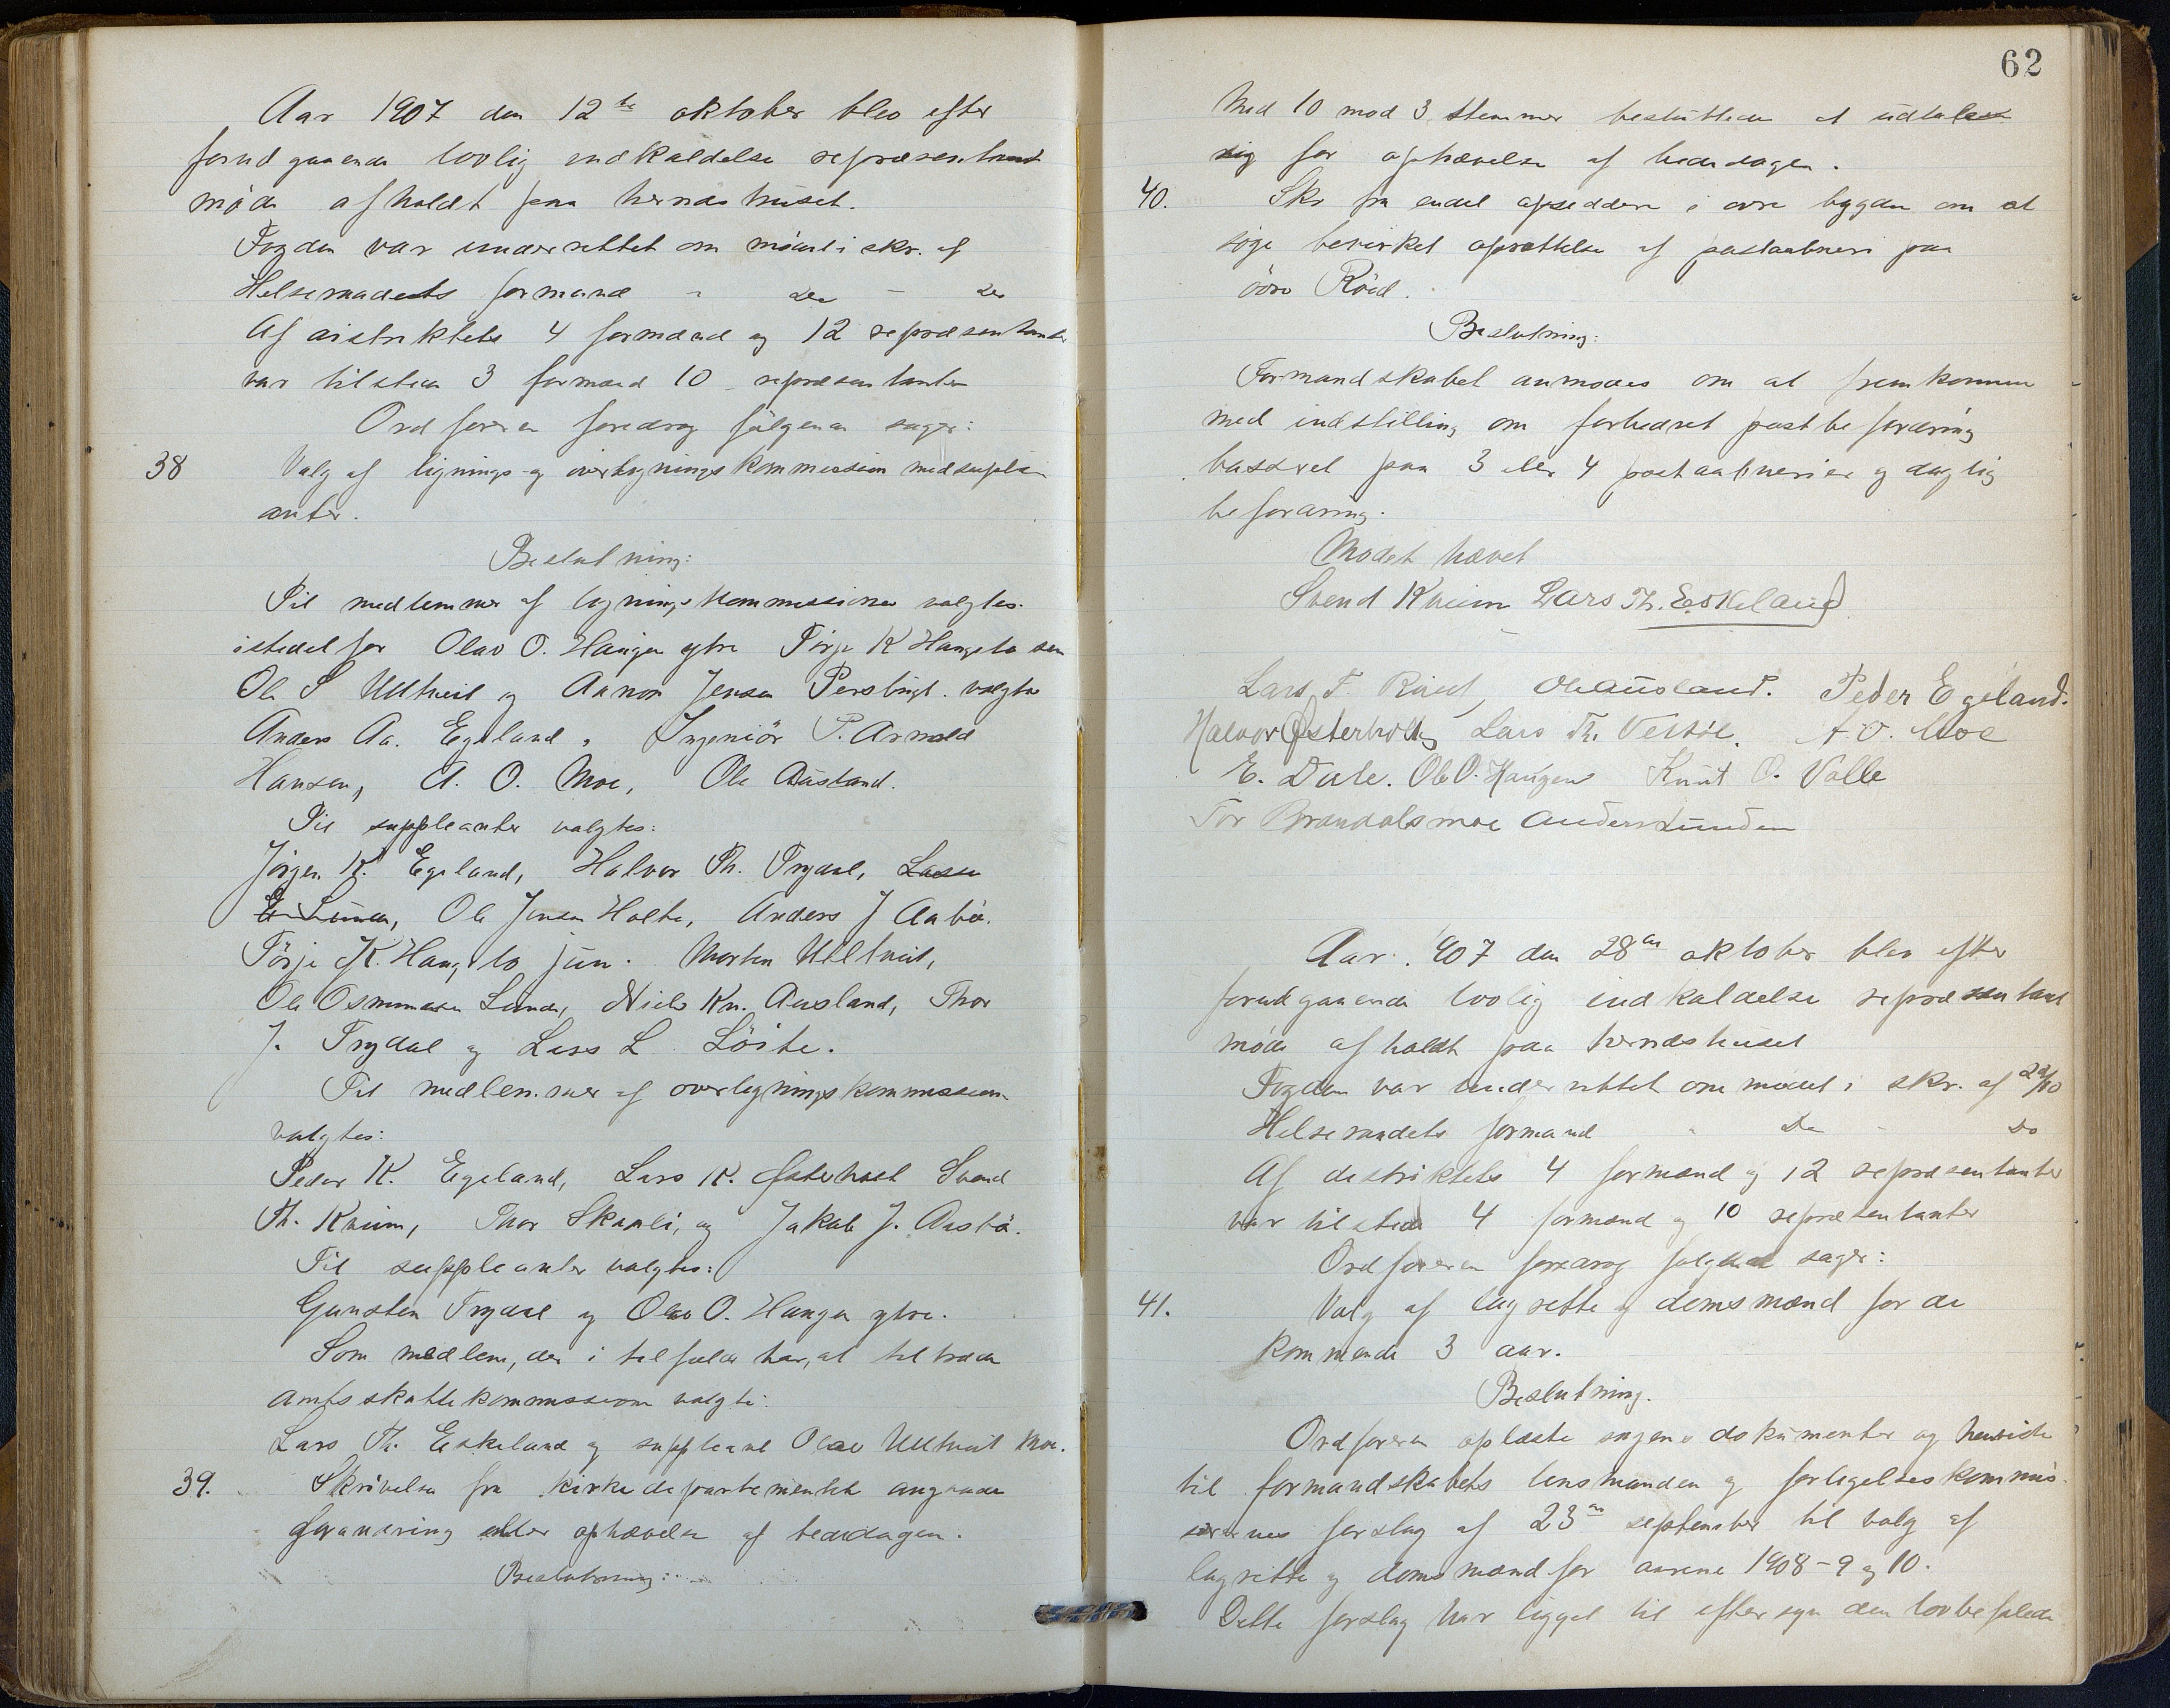 Aar 1907 den 12te oktober blev efter
forudgaaende lovlig indkaldelse repræsentant
møde afholdt paa herredshuset.
Fogden var underrettet om mødet i skr. af
Helseraadets formand - do - do
Af distriktets 4 formænd og 12 repræsentanter
var tilstede 3 formænd 10 repræsentanter
Ordføreren foredrog følgende sager:
38 Valg af lignings- og overligningskommission med suple
anter.
Beslutning:
Til medlemmer af ligningskommissionen valgtes.
istedetfor Olav O. Haugen ytre Tørje K Haugsto sen
Ole S Ulltveit og Aanon Jensen valgtes
Anders Aa. Egeland, Ingeniør P. Arnold
Hansen, A. O. Moe, Ole Ausland.
Til suppleanter valgtes:
Jørgen K. Egeland, Halvor Th. Trydal, Lasse
E Lunden, Ole Jensen Holte, Anders J Aabø.
Tørje K. Haugsto jun. Morten Ulltveit,
Ole Osmundsen Lunde, Niels Kn. Ausland, Thor
J. Trydal og Lars L. Løite.
Til medlemmer af overligningskommission
valgtes:
Peder K. Egeland, Lars K. Østerholt Svend
Th. Kveim, Thor Skaali, og Jakob J. Ausbø.
Til suppleanter valgtes:
Gunsten Trydal og Olav O. Haugen ytre.
Som medlem, der i tilfælde har, at tiltræde
amtsskattekommissionen valgte:
Lars Th. Eskeland og suppleant Olav Ulltveit Moe.
39. Skrivelse fra kirkedepartementet angaaende
forandring eller ophævelse af bededagen.
Beslutning:
62
Med 10 mod 3 stemmer besluttede at udtale
sig for ophævelse af bededagen.
40. Skr fra endel opsiddere i øvre bygden om at
søge bevirket oprettelse af postaabneri paa
øvre Røed.
Beslutning:
Formandskabet anmodes om at fremkomme
med indstilling om forbedret postbefordring
basseret paa 3 eller 4 postaabnerier og daglig
befordring.
Mødet hævet
Svend Kveim Lars Th. Eskeland
Lars T. OleAusland. Peder Egeland.
Halvor Østerholt, Lars Th. Vestøl. A. O. Moe
E. Dale. Ole O. Haugen Knut O. Valle
Tor Brandalsmoe Anders Lunden
Aar 1907 den 28de oktober blev efter
forudgaaende lovlig indkaldelse repræsentant
møde afholdt paa herredshuset
Fogden var underrettet om mødet i skr. af 22/10
Helseraadets formand - Do - Do
Af distriktets 4 formænd og 12 repræsentanter
var tilstede 4 formænd og 10 repræsentanter
Ordføreren foredrog følgende sager:
41. Valg af lagrette og domsmænd for de
kommende 3 aar.
Beslutning.
Ordføreren oplæste sagens dokumenter og henviste
til formandskabets lensmanden og forligelseskommis
særernes forslag af 23de september til valg af
lagrette og domsmænd for aarene 1908 - 9 og 10.
Dette forslag har ligget til eftersyn den lovbefalede